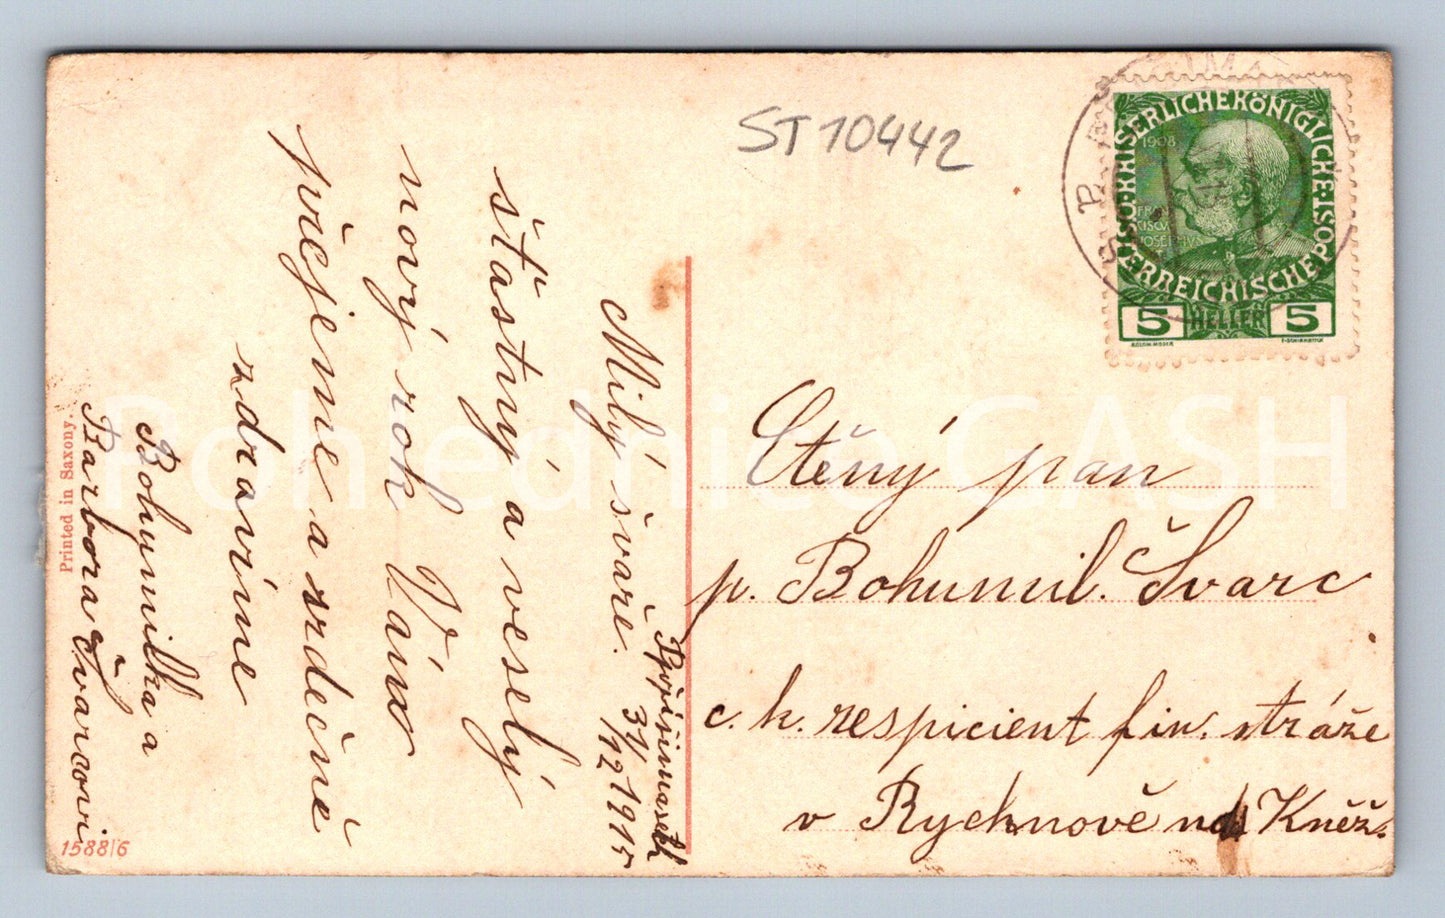 ST 10442
KAISERLICHE KÖNIGLICHE
ÖSTERREICHISCHE POST
1908
5 HELLER 5
V Přísimasech
31/12 1915
Milý švaře.
šťastný a veselý
nový rok Vám
přejeme a srdečně
zdravíme
Bohumilka a
Barbora Švarcovi
Ctěný pan
p. Bohumil. Švarc
c. k. respicient fin. stráže
v Rychnově nad Kněž.
Printed in Saxony.
1588/6
Pohlednice GASH